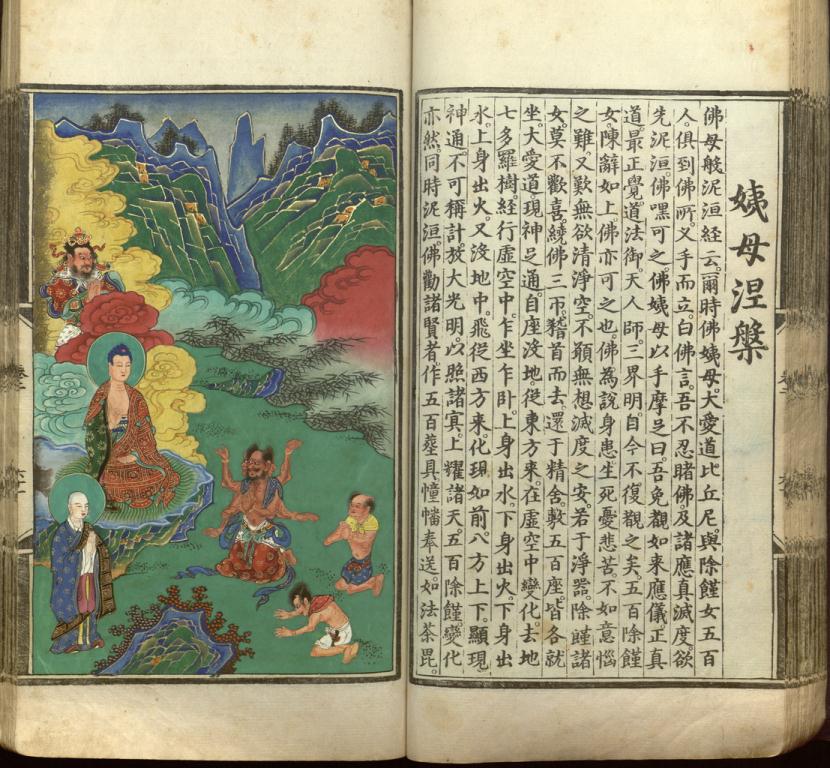 姨母涅槃
佛母般泥洹経云。爾時佛姨母。大愛道比丘尼與除饉女五百
人。俱到佛所。乂手而立。白佛言。吾不忍睹佛。及諸應真滅度。欲
先泥洹。佛嘿可之。佛姨母以手摩足曰。吾免觀如来應儀正真
道。最正覺道法御。天人師。三界明。自今不復覩之矣。五百除饉
女陳辭如上。佛亦可之也。佛為說身患生死憂悲苦。不如意惱
之難。又歎無欲清淨。空。不願無想滅度之安。若于淨器。除饉諸
女。莫不歡喜。繞佛三帀。稽首而去。還于精舍。敷五百座。皆各就
坐。大愛道現神足通。自座没地。從東方来。在虚空中變化。去地
七多羅樹。経行虚空中。乍坐乍卧。上身出水。下身出火。下身出
水。上身出火。又没地中。飛從西方来。化現如前。八方上下。顯現
神通。不可稱計。放大光明。以照諸㝠。上耀諸天。五百除饉變化
亦然。同時泥洹。佛勸諸賢者。作五百葬具。幢幡奉送。如法茶毘。